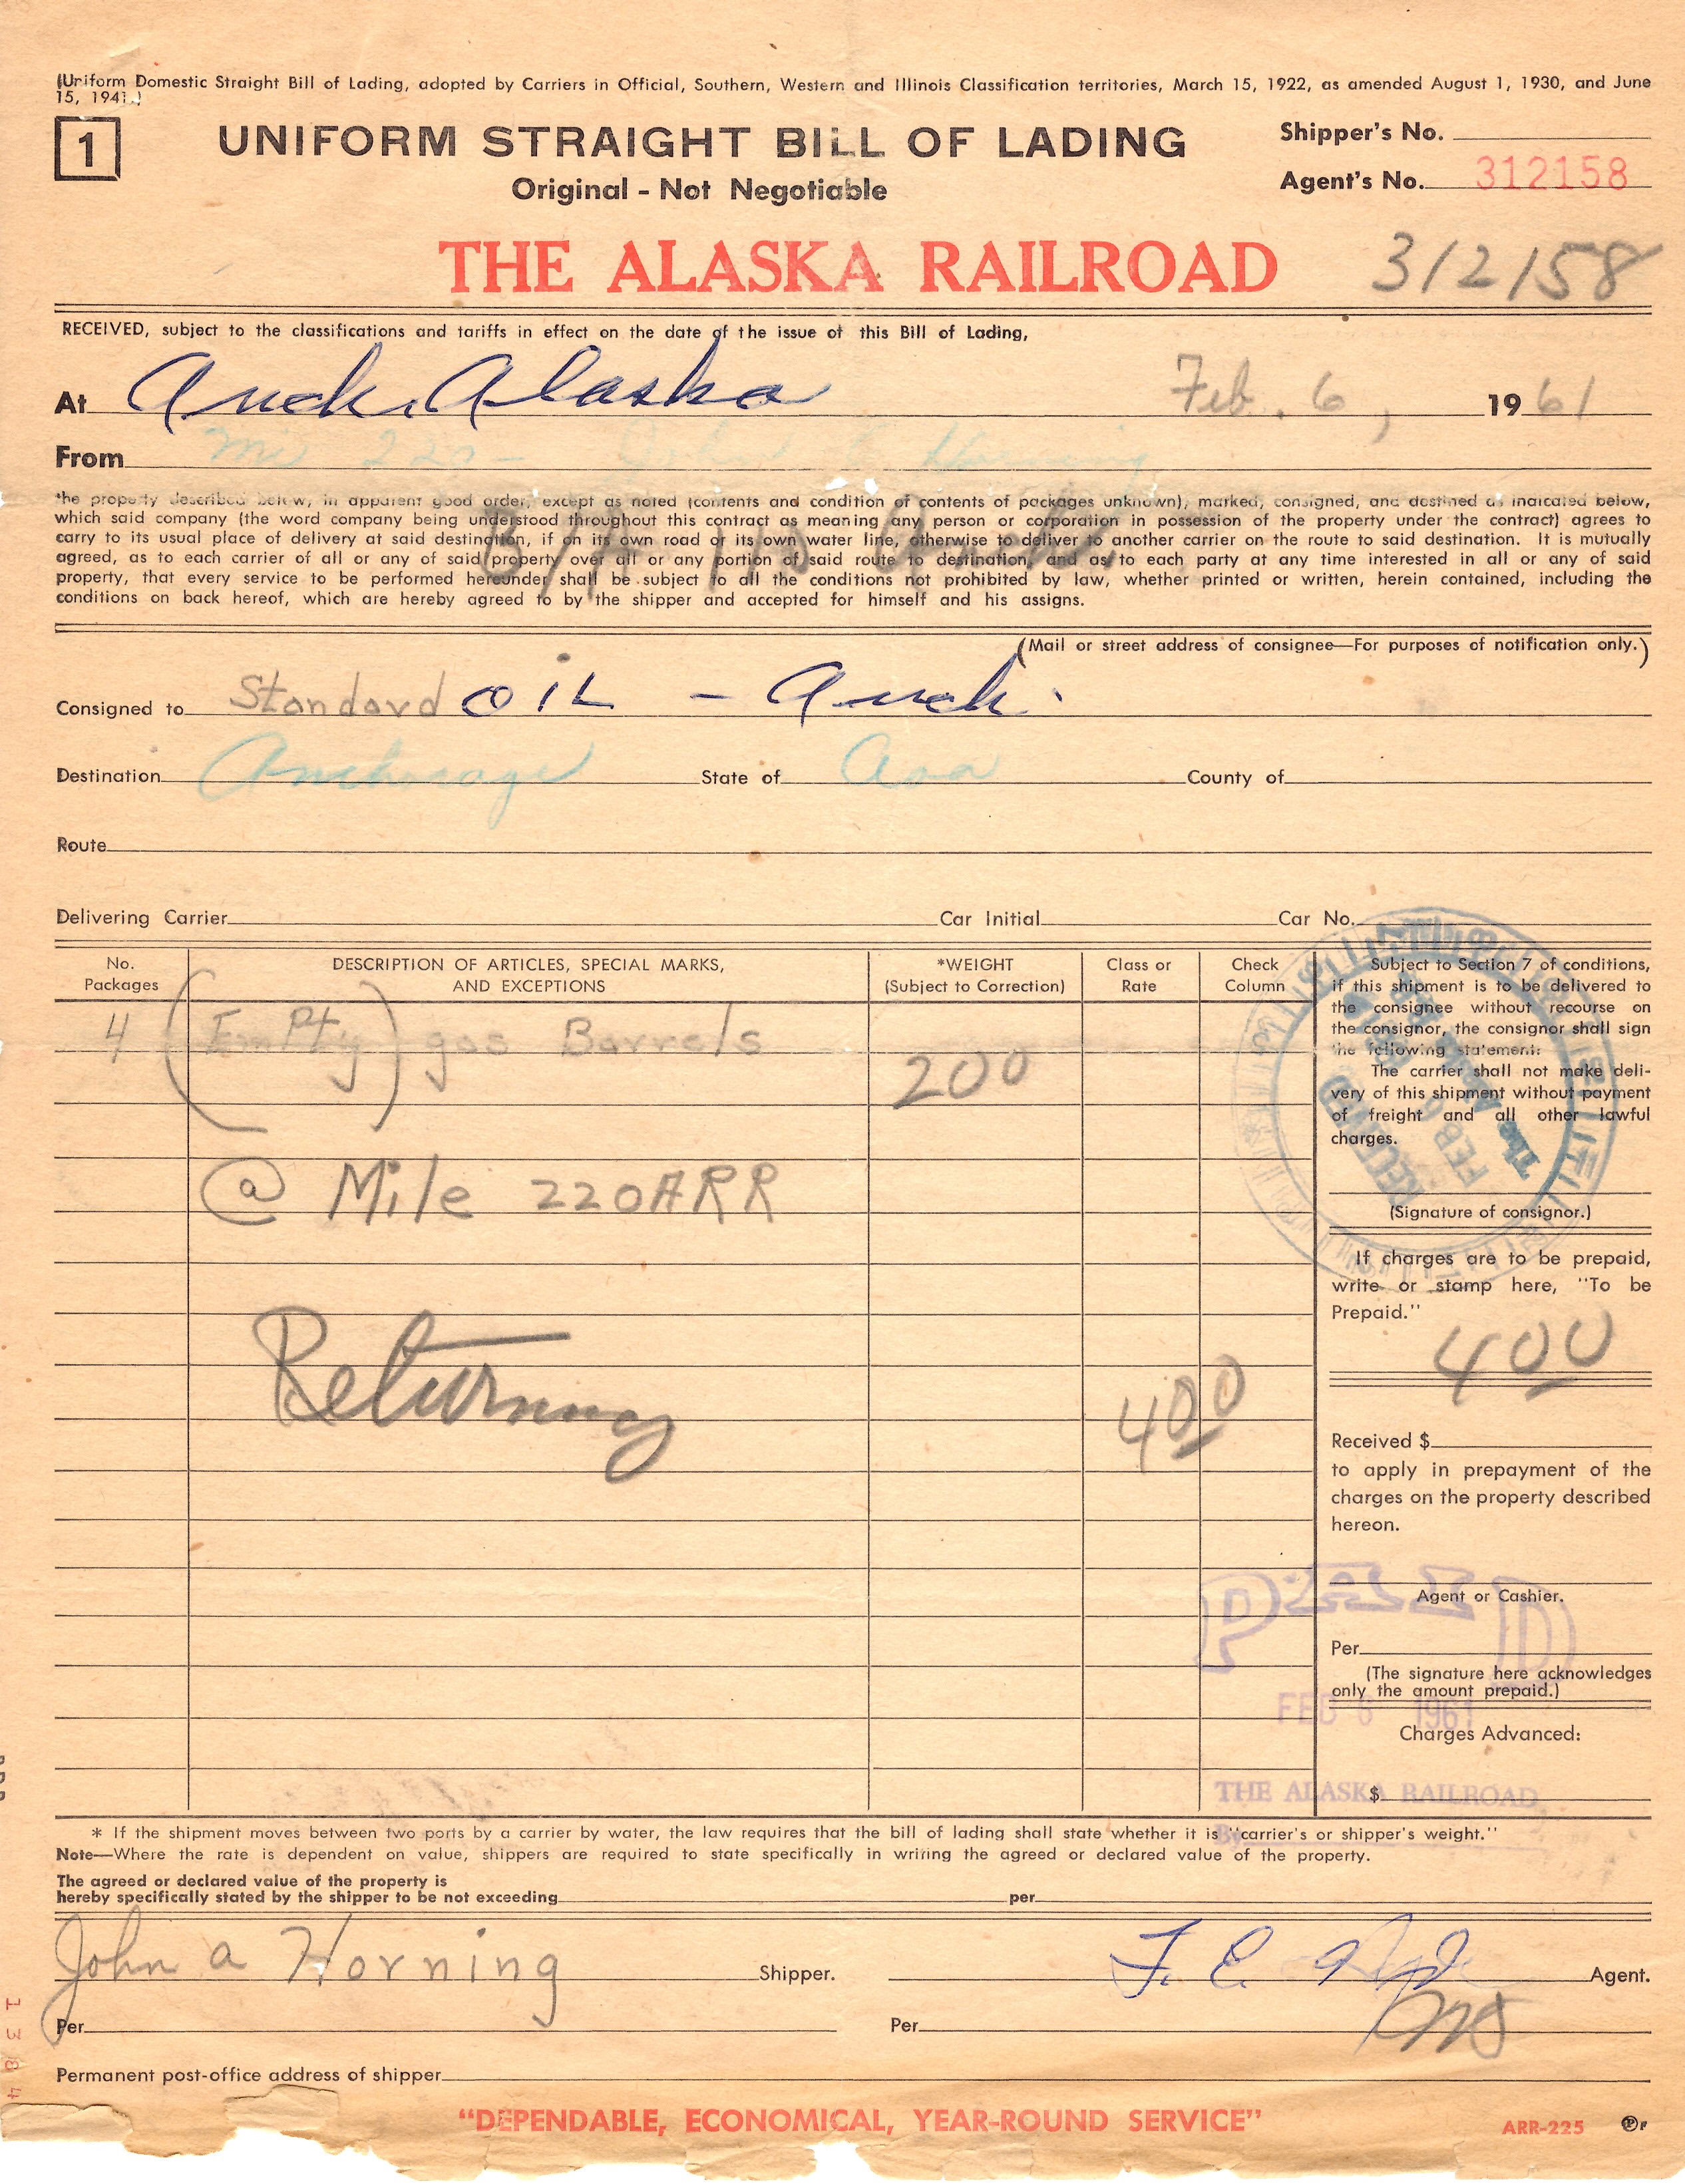 (Uniform Domestic Straight Bill of Lading, adopted by Carriers in Official, Southern, Western and Illinois Classification territories, March 15, 1922, as amended August 1, 1930, and June
15, 1941.)
1
UNIFORM STRAIGHT BILL OF LADING
Original - Not Negotiable
Shipper's No.
Agent's No. 312158
THE ALASKA RAILROAD
312158
RECEIVED, subject to the classifications and tariffs in effect on the date of the issue of this Bill of Lading,
At Anch. Alaska Feb. 6, 1961
From Mi 220 - John Horning
the property described below, in apparent good order, except as noted (contents and condition of contents of packages unknown), marked, consigned, and destined as indicated below,
which said company (the word company being understood throughout this contract as meaning any person or corporation in possession of the property under the contract) agrees to
carry to its usual place of delivery at said destination, if on its own road or its own water line, otherwise to deliver to another carrier on the route to said destination. It is mutually
agreed, as to each carrier of all or any of said property over all or any portion of said route to destination, and as to each party at any time interested in all or any of said
property, that every service to be performed hereunder shall be subject to all the conditions not prohibited by law, whether printed or written, herein contained, including the
conditions on back hereof, which are hereby agreed to by the shipper and accepted for himself and his assigns.
(Mail or street address of consignee—For purposes of notification only.)
Consigned to Standard OIL - Anch.
Destination Anchorage State of County of
Route
Delivering Carrier Car Initial Car No.
No.
Packages
DESCRIPTION OF ARTICLES, SPECIAL MARKS,
AND EXCEPTIONS
*WEIGHT
(Subject to Correction)
Class or
Rate
Check
Column
4 (Empty) gas Barrels
200
@ Mile 220 ARR
Returning
400
Subject to Section 7 of conditions,
if this shipment is to be delivered to
the consignee without recourse on
the consignor, the consignor shall sign
the following statement:
The carrier shall not make deli-
very of this shipment without payment
of freight and all other lawful
charges.
(Signature of consignor.)
If charges are to be prepaid,
write or stamp here, "To be
Prepaid."
400
Received $
to apply in prepayment of the
charges on the property described
hereon.
Agent or Cashier.
Per
(The signature here acknowledges
only the amount prepaid.)
Charges Advanced:
$
PAID
FEB 6 1961
THE ALASKA RAILROAD
By
* If the shipment moves between two ports by a carrier by water, the law requires that the bill of lading shall state whether it is "carrier's or shipper's weight."
Note—Where the rate is dependent on value, shippers are required to state specifically in writing the agreed or declared value of the property.
The agreed or declared value of the property is
hereby specifically stated by the shipper to be not exceeding per
John A Horning Shipper. F. E. Agent.
Per Per
Permanent post-office address of shipper
"DEPENDABLE, ECONOMICAL, YEAR-ROUND SERVICE"
ARR-225
1384